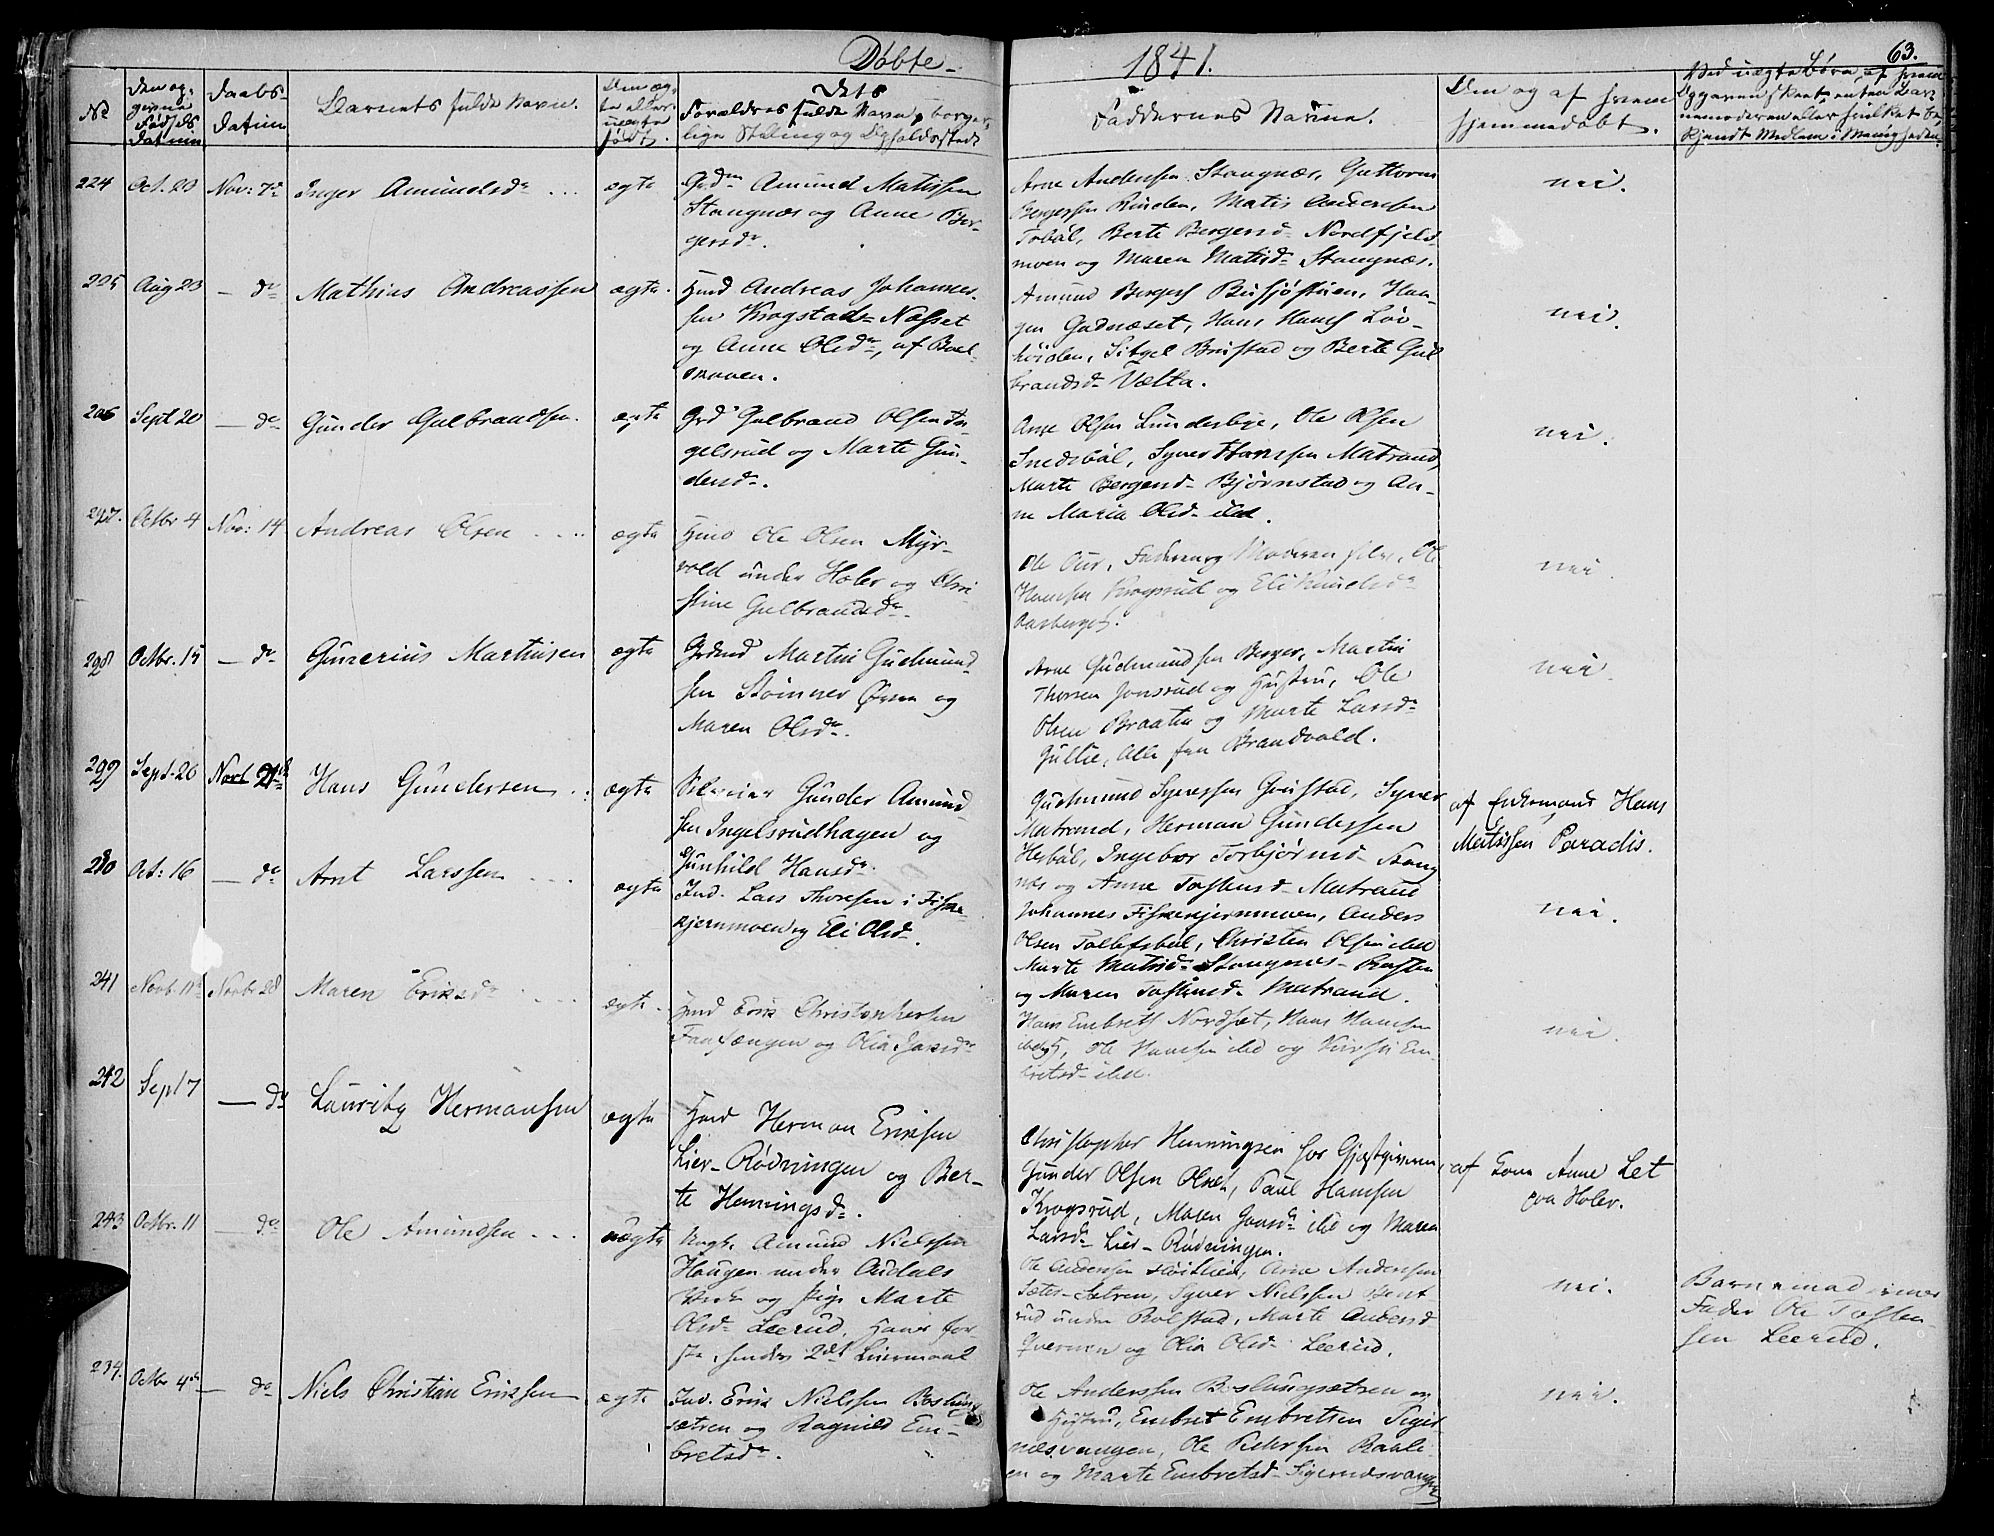 Døbte
1841.
63.
No
Den opgivne Fødsels Datum
Daabs Datum
Barnets fulde Navn.
Den ægte eller uægte født.
Dets Forældres fulde Navn, borgerlige Stilling og Opholdssted
Faddernes Navne.
Den og af hvem hjemmedøbt.
Ved uægte Børn, af hvem Opgaven skeet, enten Barnemoderen eller hvilket bekjendt Medlem i Menigheden
224 Oct. 20 Nov: 7de Inger Amundsdr ægte
Grdm Amund Matissen
Stangnæs og Anne Ber-
gersdr.
Arne Andersen Stangnæs, Guttorm
Bergersen Rinden, Matis Andersen
Tobøl, Berte Bergersd. Nordfjeld-
moen og Maren Matisd. Stangnæs.
nei.
225 Aug 23 — do Mathias Andreassen ægte.
Huusd Andreas Johannes-
sen Krogstads-Næsset
og Anne Olsdr, af
Amund Bergers
Gadnæset, Hans Hans Løv-
høiden, Brustad og Berte Gul-
brandsd. Vælta.
nei.
226 Sept 20 — do Gunder Gulbrandsen ægte
Grd Gulbrand Olsen In-
gelsrud og Marte Gun-
dersd.
Arne Olsen Lunderbye, Ole Olsen
Snedsbøl, Syver Hansen Matrand,
Marte Bergersd. Bjørnstad og An-
ne Maria Olsd. ibd.
nei.
227. Octbr 4 Nov: 14 Andreas Olsen ægte
Huusd Ole Olsen Myr-
vold under Holer og Chri-
stine Gulbrandsdr.
Ole Aur, Faderen og Moderen selv, Ole
Hansen Krogsrud og Eli Knudsdr
Aasberget.
nei.
228 Octbr. 15 — do Gunerius Martinsen ægte
Grdmd Martin Gudmund-
sen Stømner Øvre og
Maren Olsdr.
Arne Gudmundsen Berger, Martin
Thorsen Jonsrud og Hustru, Ole
Olsen Braaten og Marte Larsdr
Gullie, Alle fra Brandvold.
nei.
299 Sept. 26 Novb 21de Hans Gundersen ægte
Gunder Amund-
sen Ingelsrudhagen og
Gunhild Hansdr.
Gudmund Syversen Grustad, Syver
Matrand, Herman Gundersen
Hesbøl, Ingebor Torbjørnsd. Stang-
næs og Anne Tostensd. Matrand
af Enkemand Hans
Matissen Paradis.
230 Oct: 16 — do Arnt Larssen ægte
Ind. Lars Thoresen i Fiske-
kjernmoen og Eli Olsd.
Johannes Fiskekjernmoen, Anders
Olsen Tollefsbøl, Christen Olsen ibd
Marte Matisd. Stangnæs-
og Maren Tostensd. Matrand.
nei.
241 Novb. 11te Novbr 28 Maren Eriksdr ægte.
Huusd Erik Christophersen
og Olia
Hans Embrets Nordset, Hans Hansen
Ole Hansen ibd og Kirsti Em-
bretsd. ibd.
nei.
242 Sep 17 — do Lauritz Hermansen ægte
Huusd Herman Eriksen
Lier-Rødningen og Ber-
te Henningsd.
Christopher Henningsen hos Gjæstgiveren,
Gunder Olsen Paul Hansen
Krogsrud, Maren ibd og Maren
Larsd. Lier-Rødningen.
af Anne Let
paa Holer.
243 Octbr. 11 — do Ole Amundsen uægte
Ungk. Amund Nielssen
Haugen under Audals
Værk og Pige Marte
Olsd. Leerud. Hans før-
ste, hendes 2det Leiermaal
Ole Andersen Arne Andersen
Sæter-Sætren, Syver Nielssen Brent-
rud under Bolstad, Marte Andersd.
Qvernen og Olia Olsd. Leerud.
nei.
Barnemoderens
Fader Ole Tosten-
sen Leerud.
234. Octbr 4de — do Niels Christian Eriksen ægte
Ind. Erik Nielssen Baslung-
sætren og Ragnild Em-
bretsdr.
Ole Anderssen Baslungsætren og
Hustru, Embret Embretsen Siger-
næsvangen, Ole Pedersen
og Marte Embretsd. Sigernæsvangen
nei.